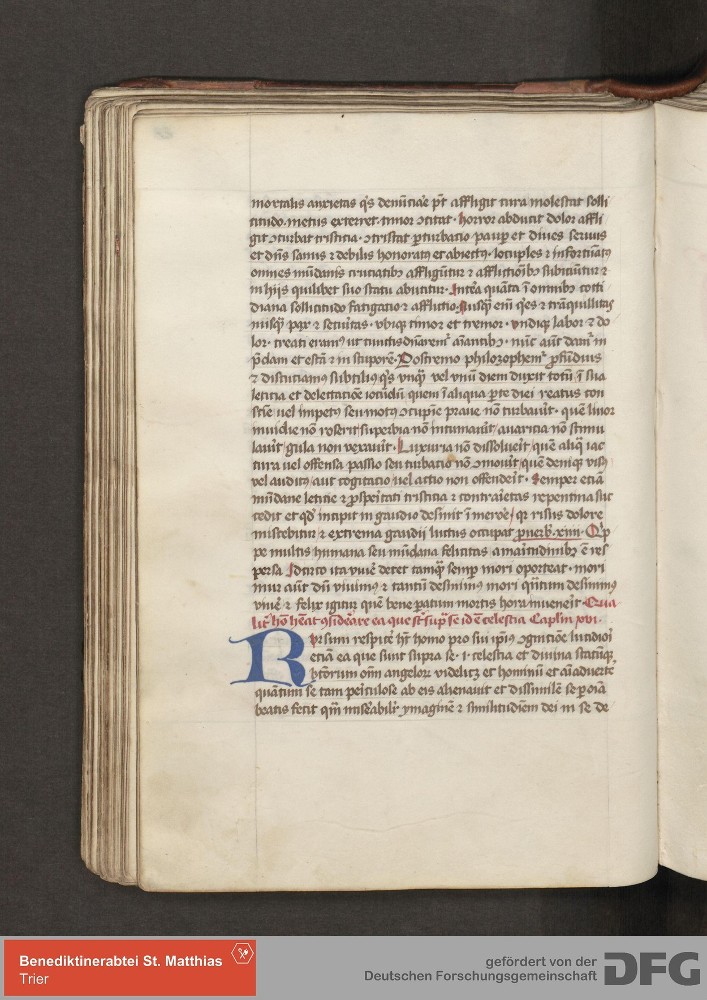 mortalis anxietas q̄s denūciāe pt̄ affligit cura molestat solli
titudo. metus exterret. timor ɔcitat. horror abducit dolor affli
git ɔturbat tristicia. ɔtristat ꝑturbacio paup̄ et dives servus
et dn̄s sanus ⁊ debilis honoratꝰ et abiectꝰ. locuples ⁊ infortūatꝰ
omnes mūdanis cruciatibꝰ affligūtur ⁊ afflictiōibꝫ subiciūtur ⁊
in hijs quilibet suo statu abutitur. Int̄ea quāta ī omnibꝫ cotti
diana sollicitudo fatigatio ⁊ afflictio. Nusq̄ em̄ q̄es ⁊ trāquillitas
nusq̄ pax ⁊ secūitas. vbiqꝫ timor et tremor. vndiqꝫ labor ⁊ do
lor. creati eramꝰ ut cūctis dn̄aremꝰ aīantibꝫ. nūc aūt damꝰ in
p̄dam et escā ⁊ in stuporē. Postremo philozophemꝰ ꝓfūdius
⁊ discutiamꝰ subtiliꝰ q̄s vnqꝫ vel vnū diem duxit totū ī sua
leticia et delectatiōe iocūdū quem ī aliqua ꝑte diei reatus con
sciē uel impetꝰ seu motꝰ ɔcupn̄e praue nō turbauit. quē liuor
inuidie nō roserit superbia nō intumauit / auaritia nō stimu
lauit / gula non vexauit. Luxuria nō dissolueit / quē aliq̄ iac
tura uel offensa passio seu turbatio nō ɔmouit / quē deniqꝫ visꝰ
vel auditꝰ / aut cogitatio / uel actio non offendeit. Semper eciā
mūdane leticie ⁊ ꝓspeitati tristicia ⁊ contraietas repentina suc
cedit et qd̄ incipit in gaudio desinit ī meroe / qꝛ risus dolore
miscebitur ⁊ extrema gaudij luctus occupat ꝓuerb. xiiii. Q̄p
pe multis humana seu mūdana felicitas amaritudinibꝫ ē res
persa Idcirco ita viuē decet tamqꝫ semp̄ mori oporteat. mori
mur aūt dū viuimꝰ ⁊ tantū desinimꝰ mori qn̄tum desinimꝰ
viuē ⁊ felix igitur quē bene paratum mortis hora inueneit Qua
lit̄ hō hēat ɔsideāre ea que st̄ sup̄ se id ē celestia Caplm̄ xvi.
Rursum respicē hꝫ homo pro sui ip̄ius ɔgnitiōe lucidioī
eciā ea que sunt supra se .i. celestia et divina statūqꝫ
bt̄orum om̄ angeloꝝ videlicꝫ et hominū et aīaduerte
quātum se tam peiculose ab eis alienauit et dissimilē se ꝑ oīa
beatis fecit qm̄ miseabilꝰ ymaginē ⁊ similitudīem dei in se de
Benediktinerabtei St. Matthias
Trier
gefördert von der
Deutschen Forschungsgemeinschaft
DFG